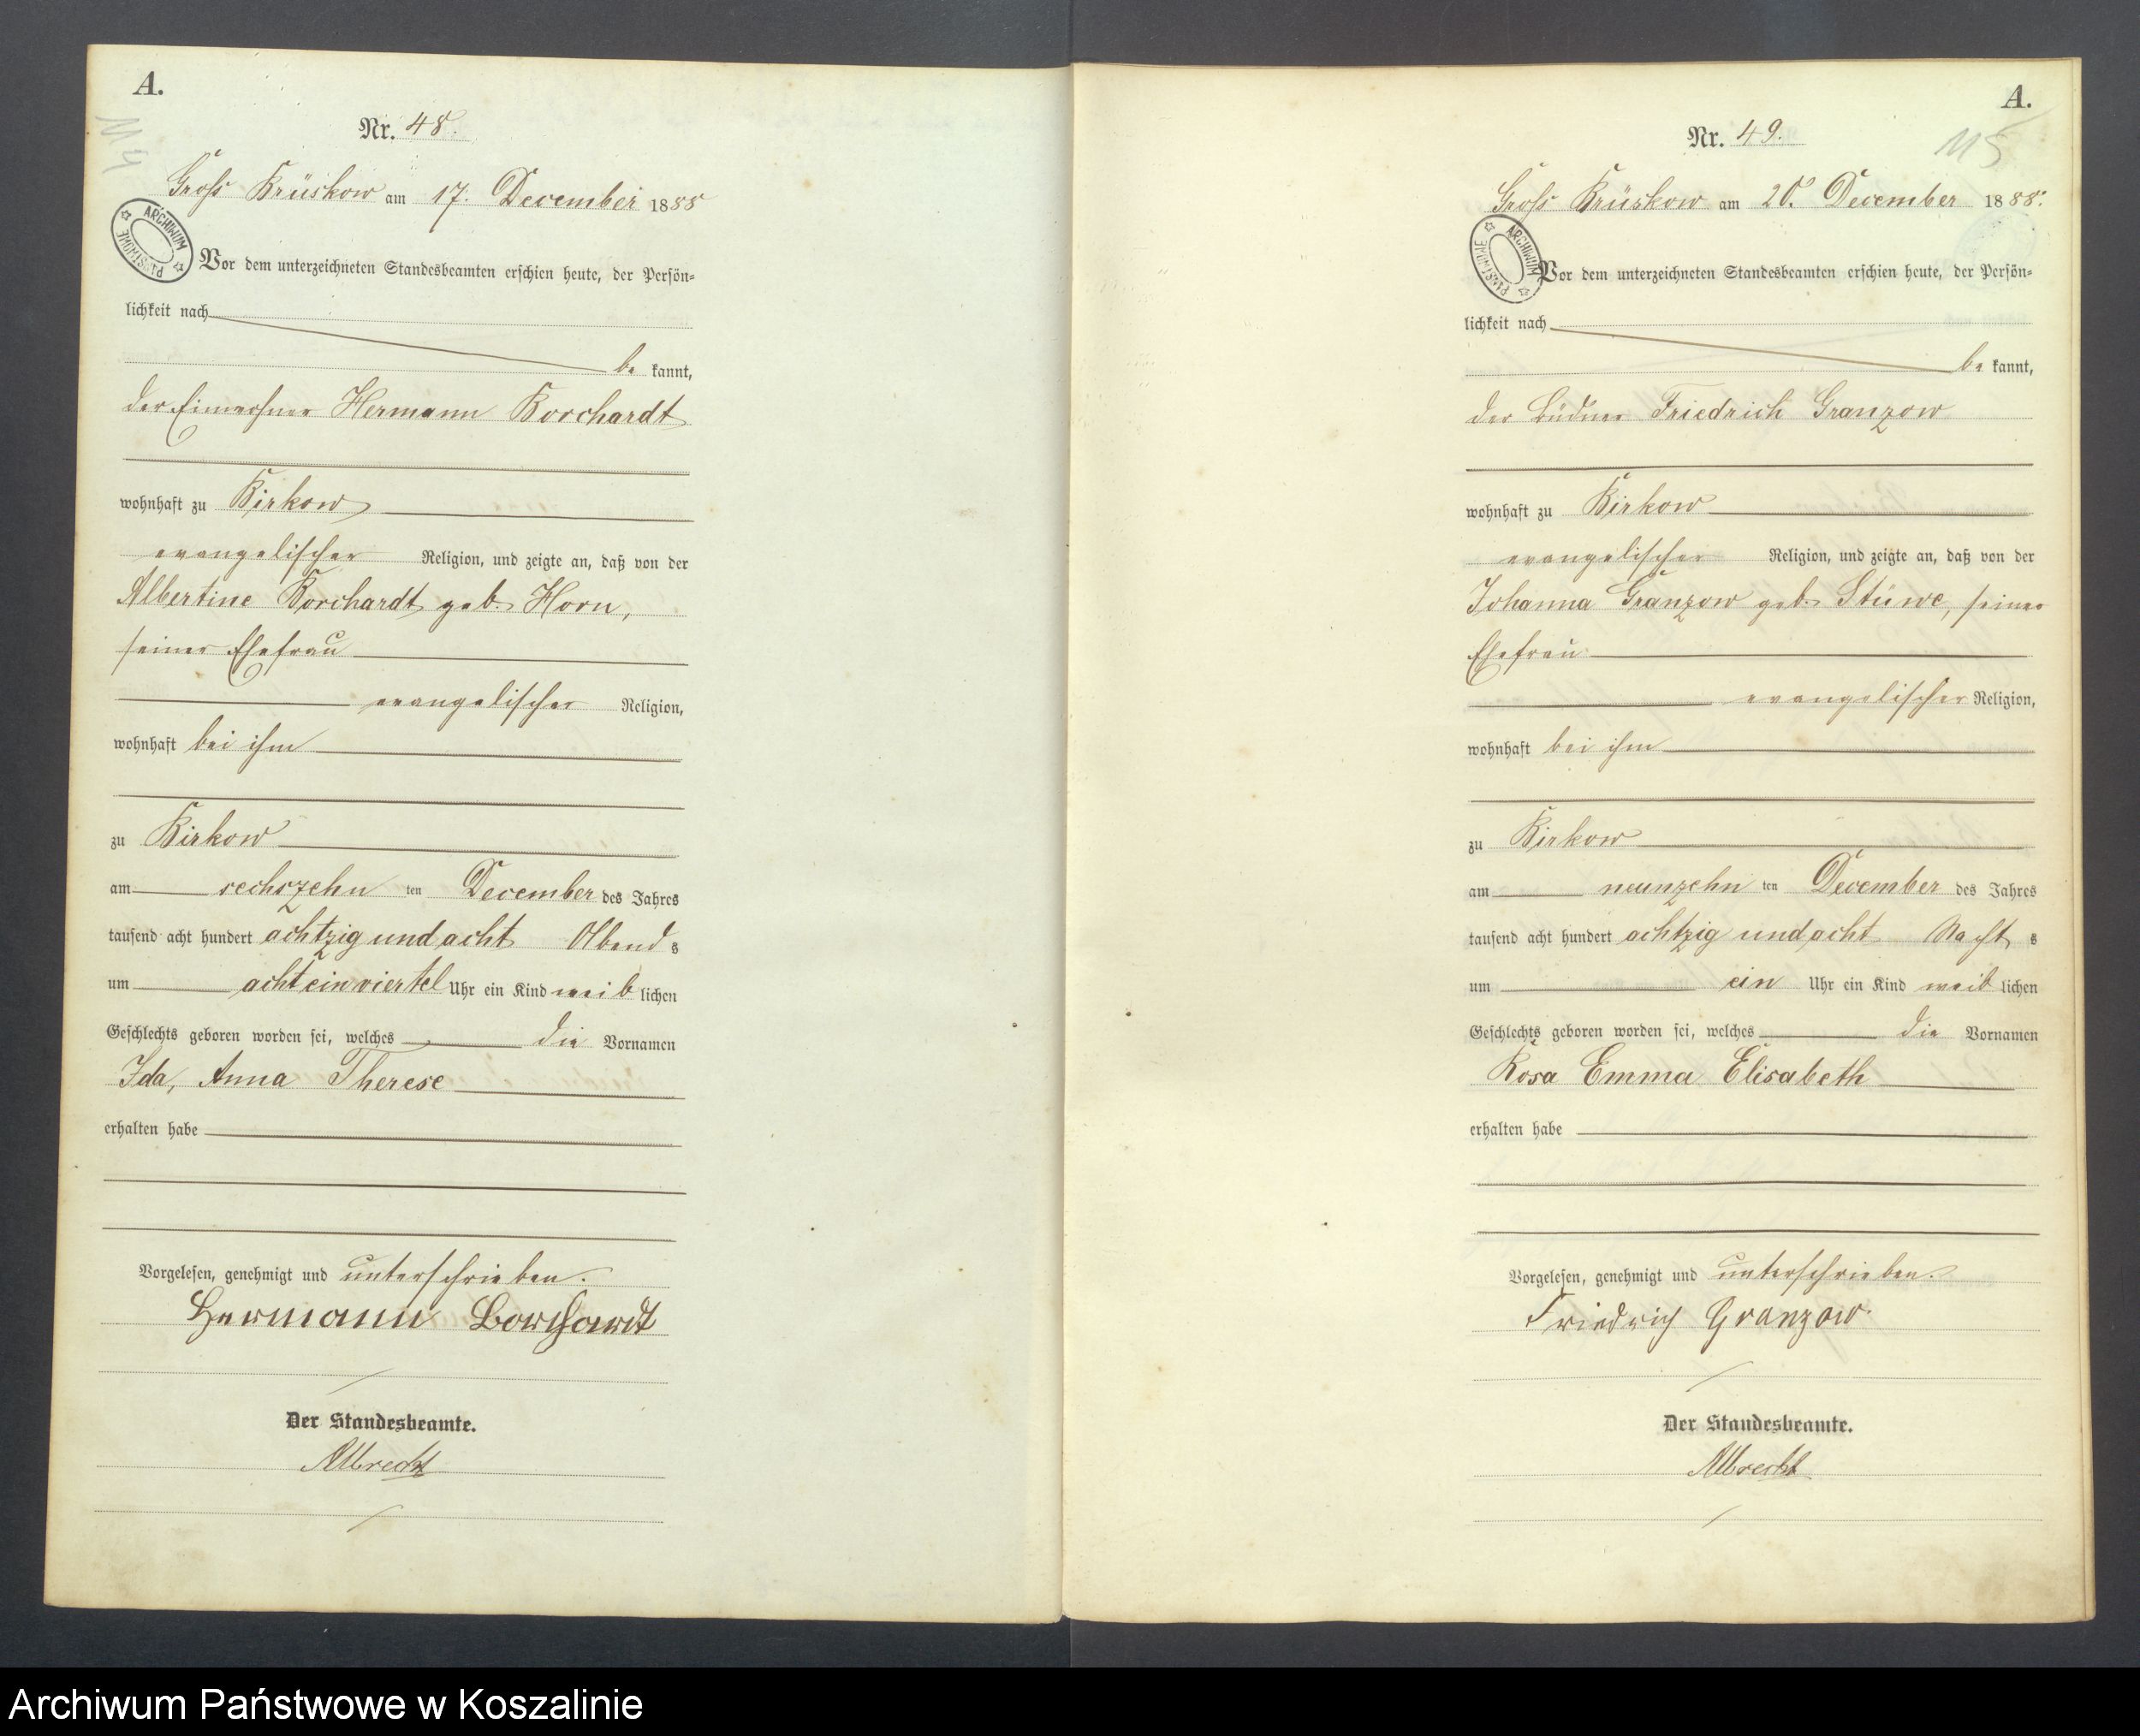 A.
114
Nr. 48.
Gross Brüskow am 17. December 1888
ARCHIWUM PAŃSTWOWE
Vor dem unterzeichneten Standesbeamten erschien heute, der Persön-
lichkeit nach
be kannt,
der Einwohner Hermann Borchardt
wohnhaft zu Birkow
evangelischer Religion, und zeigte an, daß von der
Albertine Borchardt geb. Horn,
seiner Ehefrau
evangelischer Religion,
wohnhaft bei ihm
zu Birkow
am sechszehn ten December des Jahres
tausend acht hundert achtzig und acht Abend s
um acht ein viertel Uhr ein Kind weib lichen
Geschlechts geboren worden sei, welches die Vornamen
Ida, Anna Therese
erhalten habe
Vorgelesen, genehmigt und unterschrieben.
Hermann Borchardt
Der Standesbeamte.
Albrecht
A.
115
Nr. 49.
Gross Brüskow am 20. December 1888.
ARCHIWUM PAŃSTWOWE
Vor dem unterzeichneten Standesbeamten erschien heute, der Persön-
lichkeit nach
be kannt,
der Büdner Friedrich Granzow
wohnhaft zu Birkow
evangelischer Religion, und zeigte an, daß von der
Johanna Granzow geb. Stüwe, seiner
Ehefrau
evangelischer Religion,
wohnhaft bei ihm
zu Birkow
am neunzehn ten December des Jahres
tausend acht hundert achtzig und acht Nacht s
um ein Uhr ein Kind weib lichen
Geschlechts geboren worden sei, welches die Vornamen
Rosa Emma Elisabeth
erhalten habe
Vorgelesen, genehmigt und unterschrieben.
Friedrich Granzow
Der Standesbeamte.
Albrecht
Archiwum Państwowe w Koszalinie